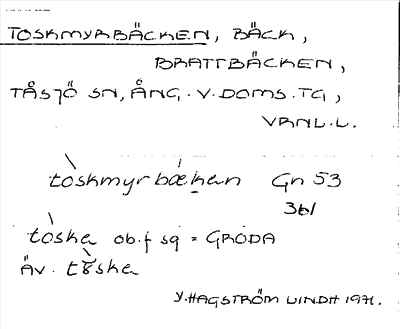 TOSKMYRBÄCKEN, BÄCK,
BRATTBÄCKEN,
TÅSJÖ SN, ÅNG. V. DOMS. TG,
VRNL. L.
toskmyrbækan Gn 53
3b1
toska ob.f sg = GRODA
ÄV. tɤska
Y. HAGSTRÖM LINDH 1971.